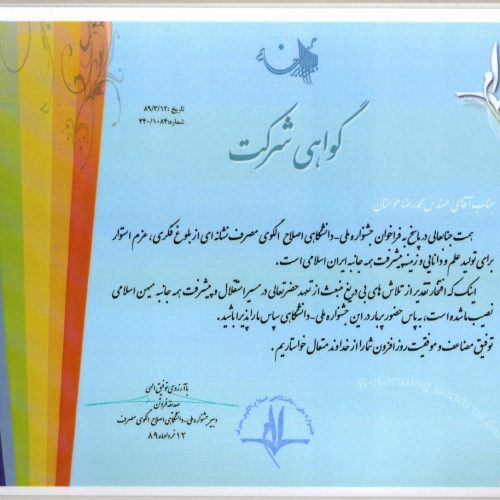 تاریخ :۸۹/۳/۱۲
شماره:۲۴۰/۱۰۸۴
گواهی شرکت
جناب آقای مهندس محمدرضا مؤمنان
همت جنابعالی در پاسخ به فراخوان جشنواره ملی-دانشگاهی اصلاح الگوی مصرف نشانه ای از بلوغ فکری، عزم استوار
برای تولید علم و دانایی و زمینه پیشرفت همه جانبه ایران اسلامی است.
اینک که افتخار تقدیر از تلاش های بی دریغ منبعث از تعهد حضرتعالی در مسیر استقلال و پیشرفت همه جانبه میهن اسلامی
نصیب ما شده است، به پاس حضور پربار در این جشنواره ملی-دانشگاهی سپاس ما را پذیرا باشید.
توفیق مضاعف و موفقیت روز افزون شما را از خداوند متعال خواستاریم .
با آرزوی توفیق الهی
دبیر جشنواره ملی-دانشگاهی اصلاح الگوی مصرف
۱۲ خرداد ماه ۸۹
جشنواره ملی ، دانشگاهی اصلاح الگوی مصرف
Reforming norms of